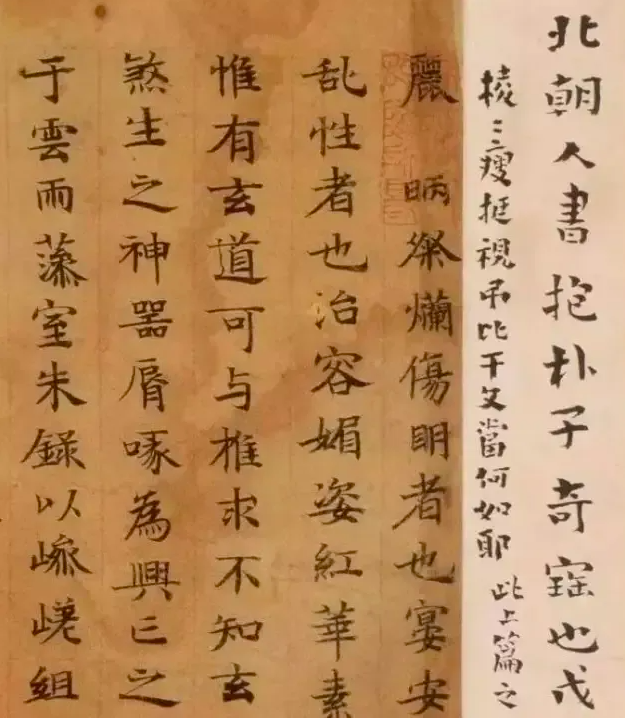 北朝人書抱朴子奇寶也戊
棱〻瘦挺視弔比干文當何如耶 此上篇之
麗 昞粲爛傷眀者也宴安
乱性者也冶容媚姿紅華素
惟有玄道可与推求不知玄
煞生之神器脣啄為興亡之
于雲雨藻室朱錄以嵾嵯組